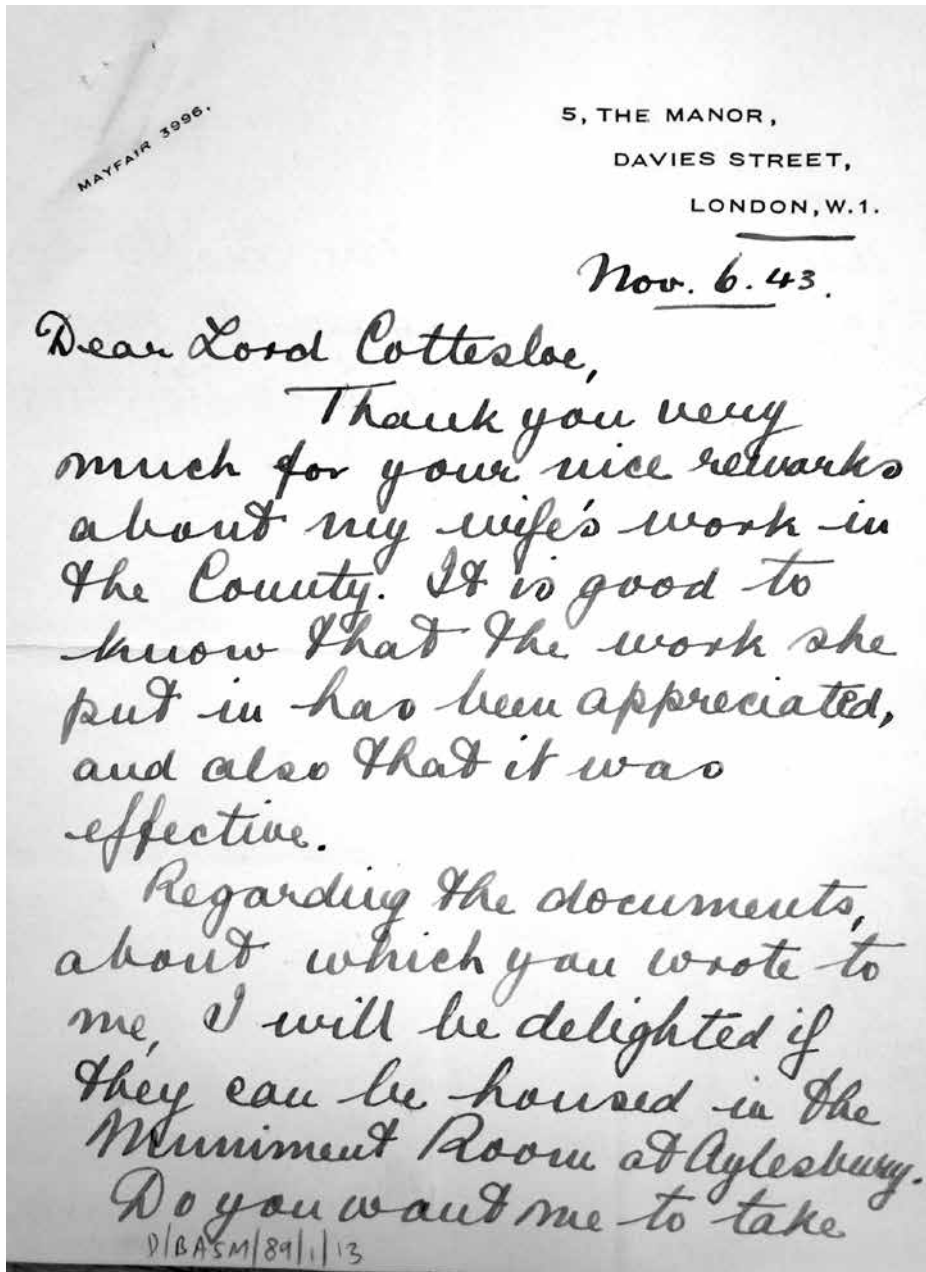 MAYFAIR 3996.
5, THE MANOR,
DAVIES STREET,
LONDON, W.1.
Nov. 6. 43.
Dear Lord Cottesloe,
Thank you very
much for your nice remarks
about my wife's work in
the County. It is good to
know that the work she
put in has been appreciated,
and also that it was
effective.
Regarding the documents,
about which you wrote to
me, I will be delighted if
they can be housed in the
Muniment Room at Aylesbury.
Do you want me to take
D/BASM/89/1/13